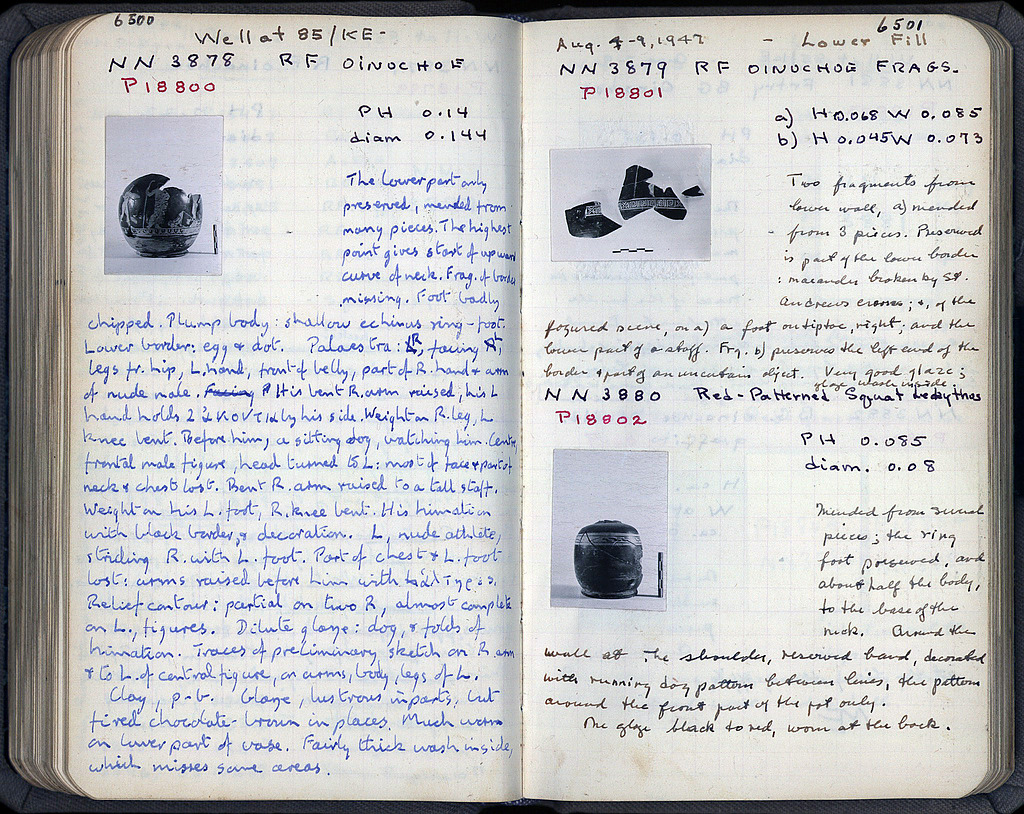 6500
Well at 85/KE-
NN 3878 RF OINOCHOE
P18800
PH 0.14
diam 0.144
The lower part only
preserved, mended from
many pieces. The highest
point gives start of upward
curve of neck. Frag. of border
missing. Foot badly
chipped. Plump body: shallow echinus ring-foot.
Lower border: egg & dot. Palaestra: R, facing
legs fr. hip, L. hand, front of belly, part of R. hand & arm
of nude male. His bent R. arm raised, his L
hand holds 2 by his side. Weight on R. leg, L
knee bent. Before him, a sitting dog, watching him. Centre,
frontal male figure, head turned to L: most of face & part of
neck & chest lost. Bent R. arm raised to a tall staff.
Weight on his L. foot, R. knee bent. His himation
with black border, & decoration. L, nude athlete,
striding R. with L. foot. Part of chest & L. foot
lost: arms raised before him with
Relief contour: partial on two R, almost complete
on L., figures. Dilute glaze: dog, & folds of
himation. Traces of preliminary sketch on R. arm
& to L. of central figure, on arms, body, legs of L.
Clay, p-b. Glaze, lustrous in parts, but
fired chocolate-brown in places. Much worn
on lower part of vase. Fairly thick wash inside,
which misses some areas.
6501
Aug. 4-9, 1947 - Lower Fill
NN 3879 RF OINOCHOE FRAGS.
P18801
a) H 0.068 W 0.085
b) H 0.045 W 0.073
Two fragments from
lower wall, a) mended
from 3 pieces. Preserved
is part of the lower border
: maeander broken by St.
Andrews crosses; &, of the
figured scene, on a) a foot on tiptoe, right; and the
lower part of a staff. Frg. b) preserves the left end of the
border & part of an uncertain object. Very good glaze;
glaze wash inside
NN 3880 Red-Patterned Squat Lekythos
P18802
PH 0.085
diam. 0.08
Mended from several
pieces; the ring
foot preserved, and
about half the body,
to the base of the
neck. Around the
wall at the shoulder, reserved band, decorated
with running dog pattern between lines, the pattern
around the front part of the pot only.
The glaze black to red, worn at the back.